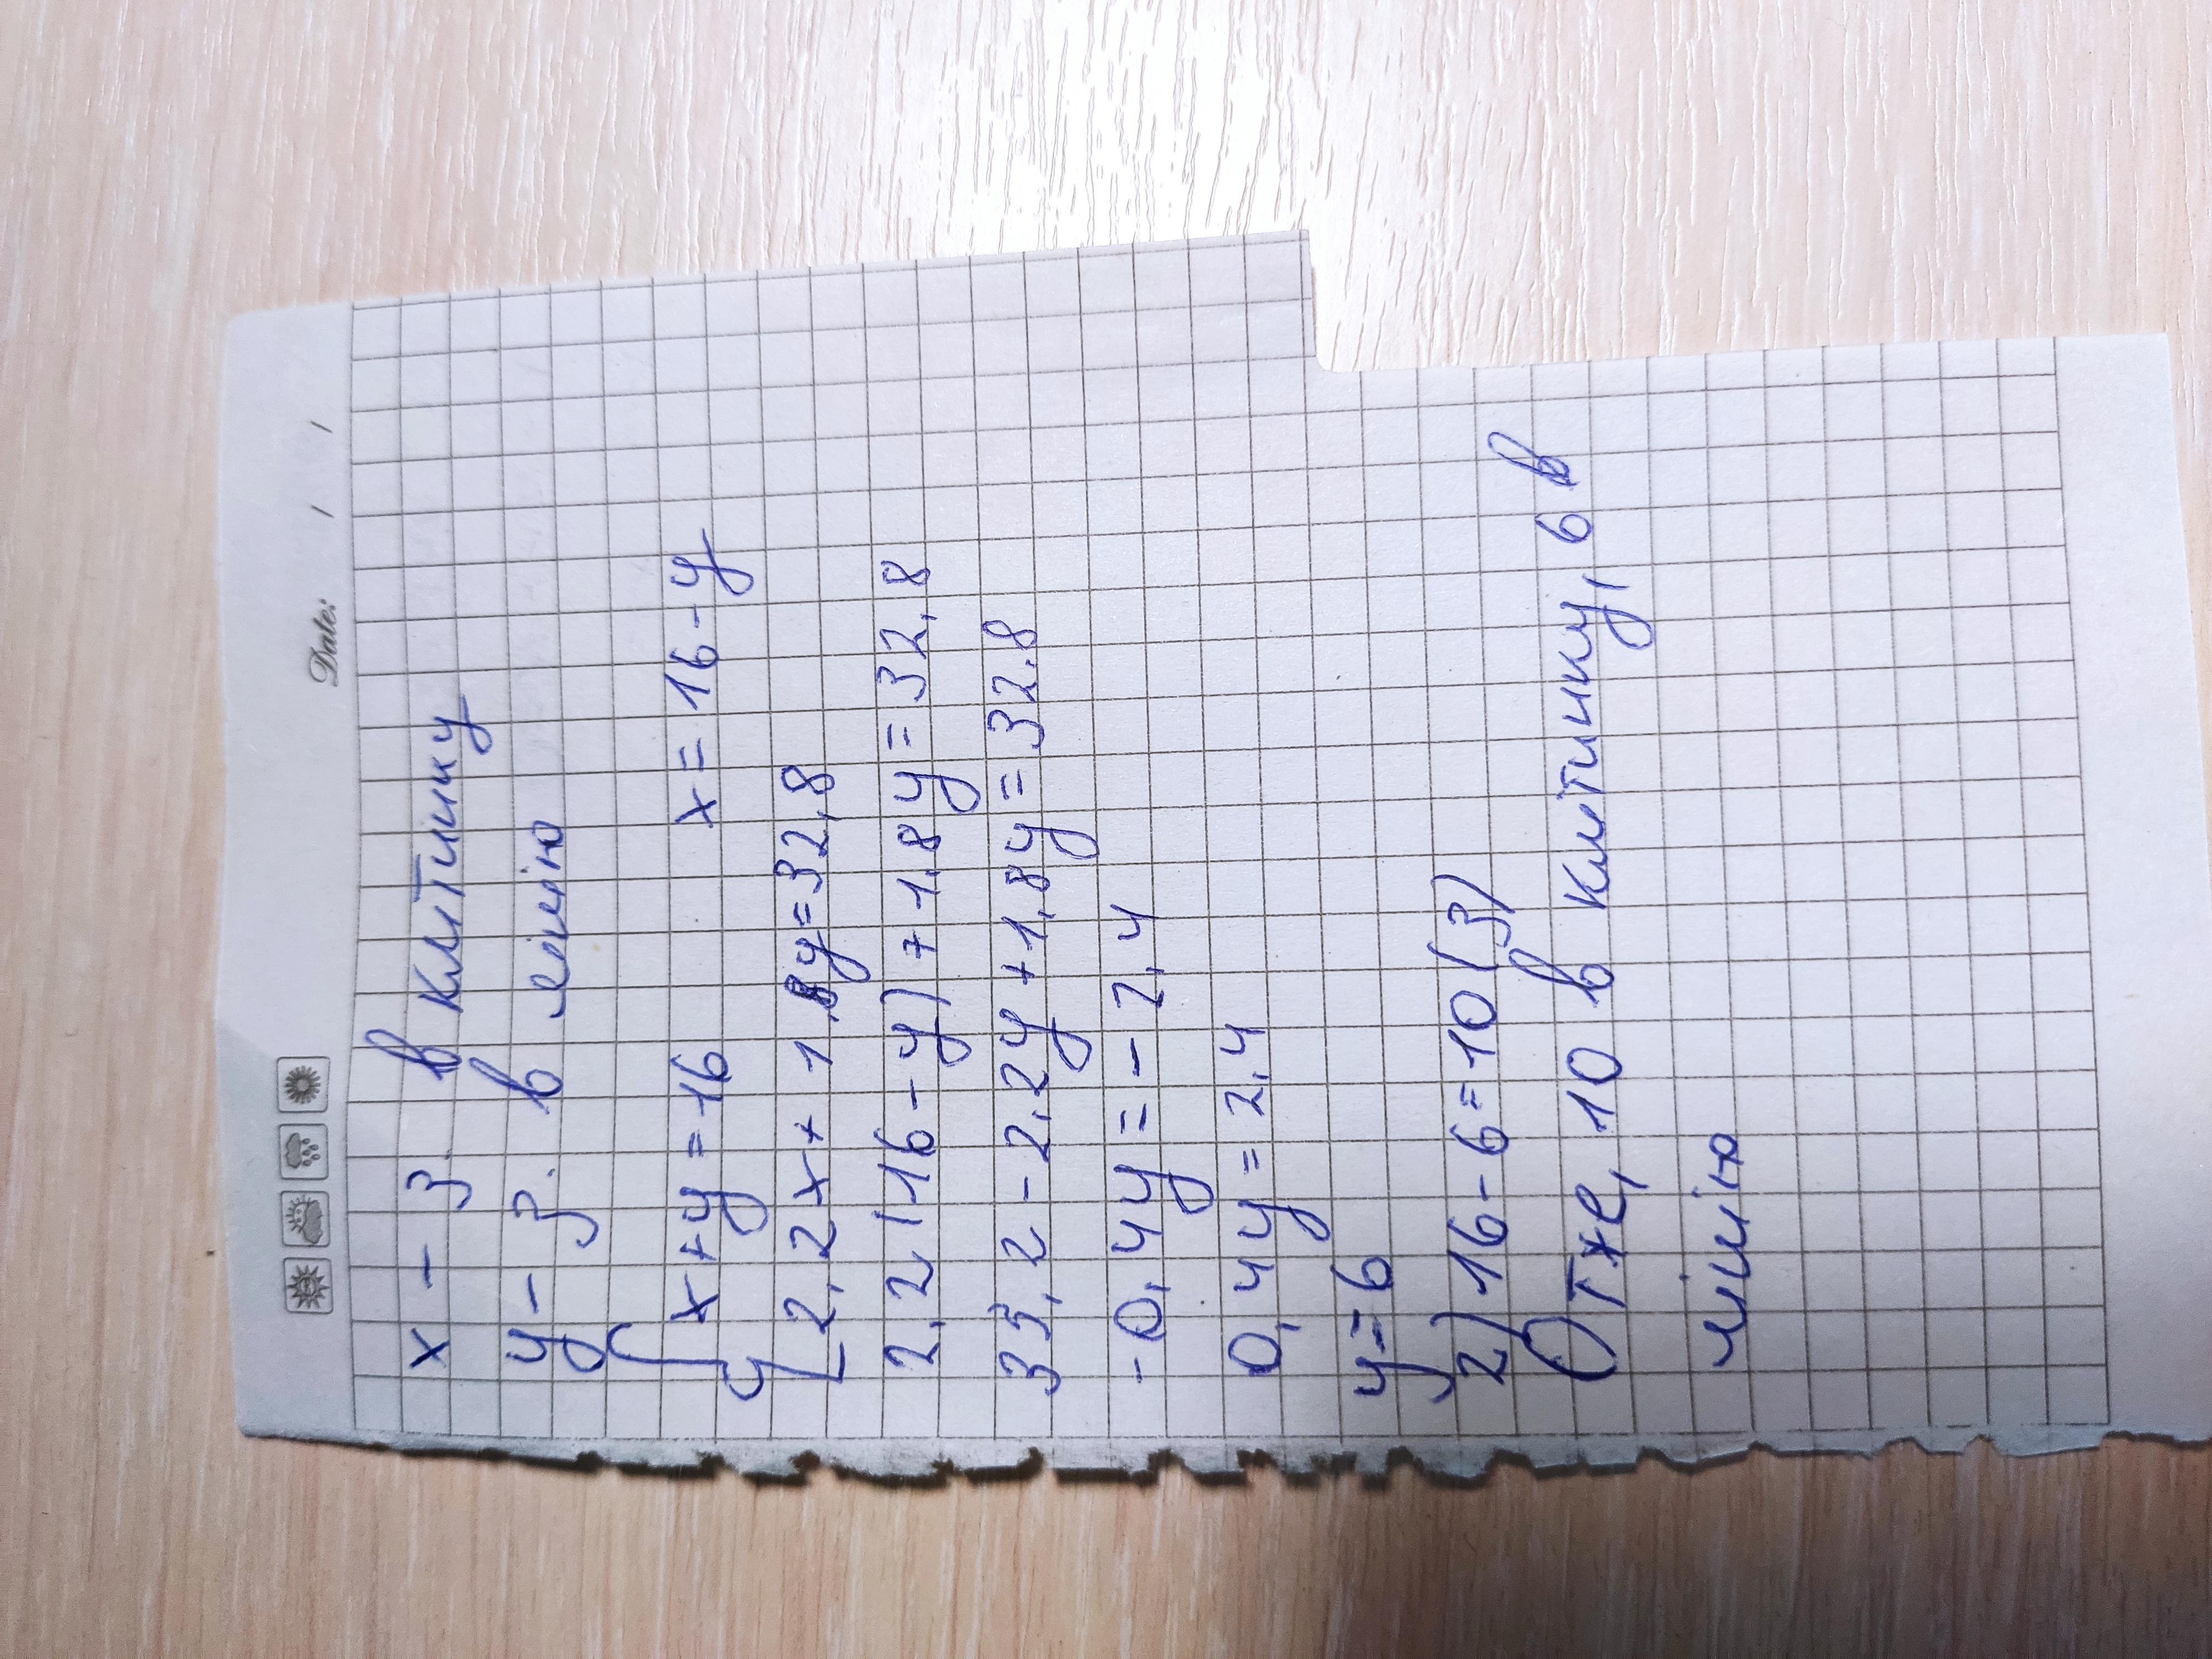 Date: / /
x – з. в клітинку
y – з. в лінію
{ x + y = 16 x = 16 - y
2,2x + 1,8y = 32,8
2,2(16 - y) + 1,8y = 32,8
35,2 - 2,2y + 1,8y = 32,8
-0,4y = -2,4
0,4y = 2,4
y = 6
2) 16 - 6 = 10 (з)
Отже, 10 в клітинку, 6 в
лінію